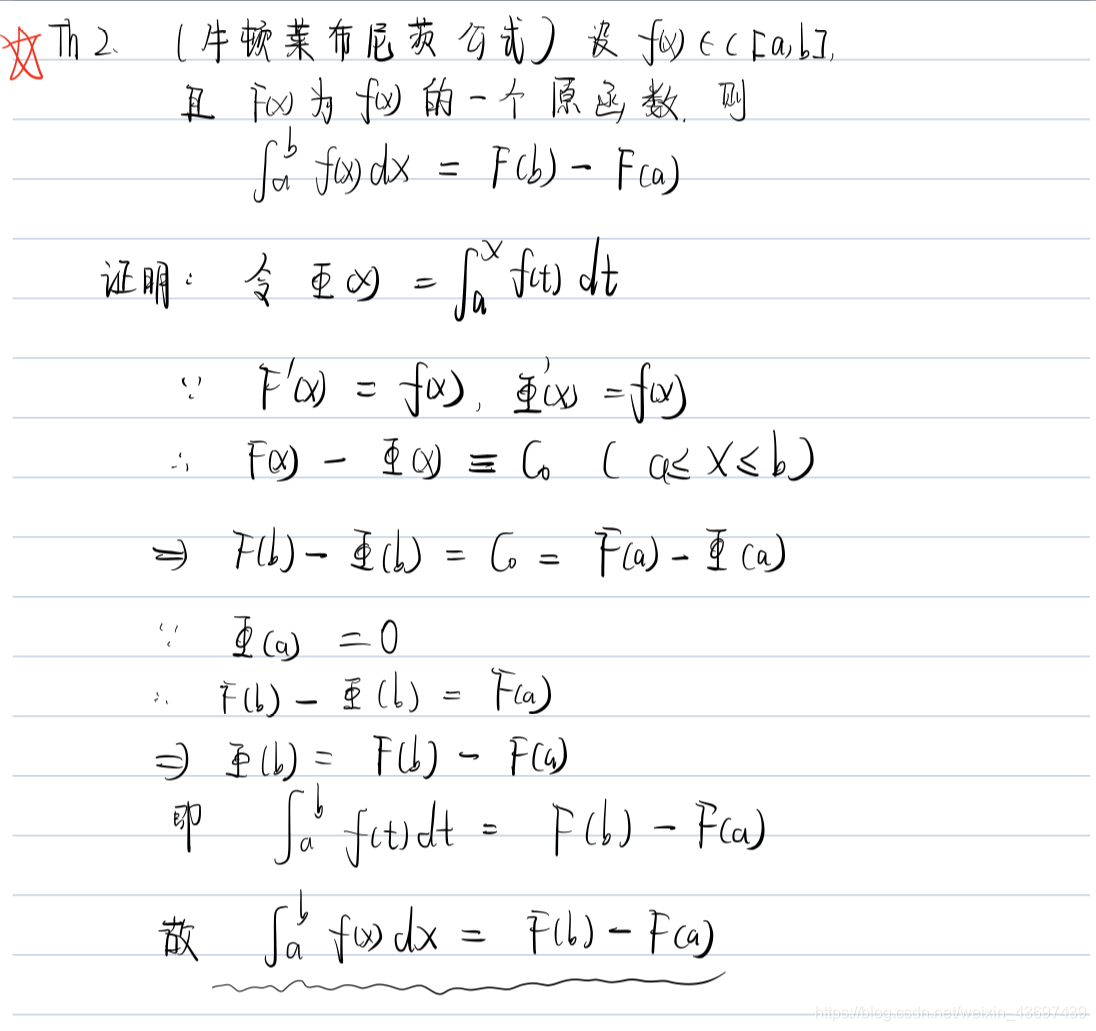 ☆ Th 2. (牛顿莱布尼茨公式) 设 f(x) ∈ C[a,b],
且 F(x) 为 f(x) 的一个原函数, 则
∫_a^b f(x) dx = F(b) - F(a)
证明: 令 Φ(x) = ∫_a^x f(t) dt
∵ F'(x) = f(x), Φ'(x) = f(x)
∴ F(x) - Φ(x) ≡ C₀ ( a ≤ x ≤ b )
⇒ F(b) - Φ(b) = C₀ = F(a) - Φ(a)
∵ Φ(a) = 0
∴ F(b) - Φ(b) = F(a)
⇒ Φ(b) = F(b) - F(a)
即 ∫_a^b f(t) dt = F(b) - F(a)
故 ∫_a^b f(x) dx = F(b) - F(a)
https://blog.csdn.net/weixin_43697439